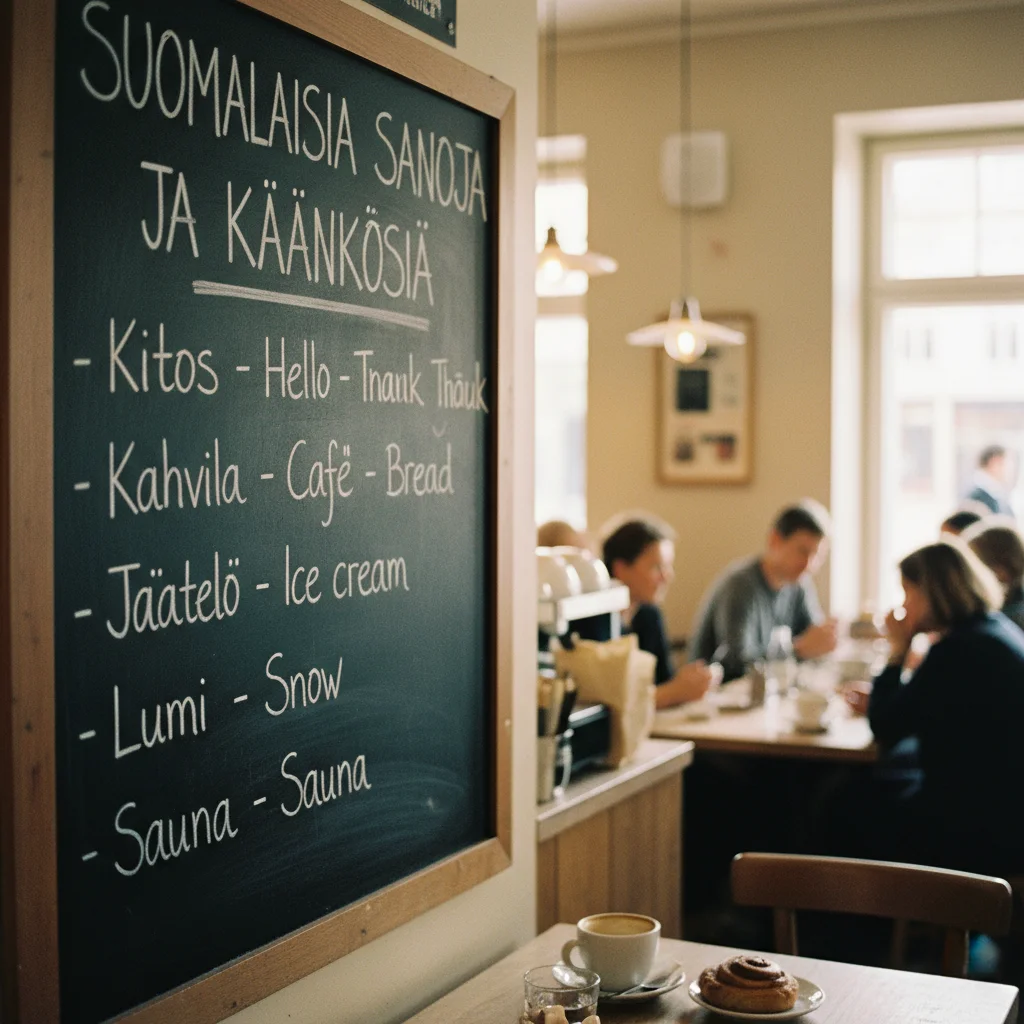 SUOMALAISIA SANOJA
JA KÄÄNKÖSIÄ
- Kitos - Hello - Thank
- Kahvila - Cafë - Bread
- Jäätelö - Ice cream
- Lumi - Snow
- Sauna - Sauna